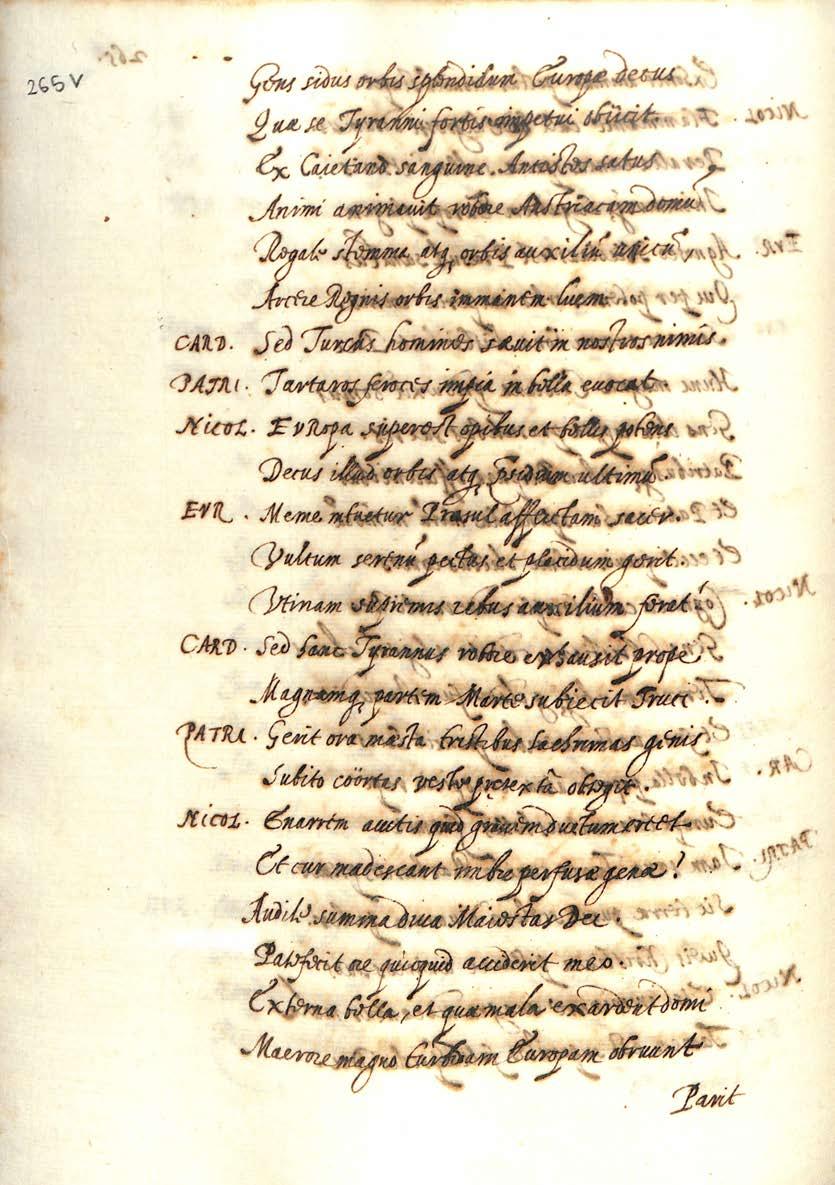 265 v
Gens sidus orbis splendidum Europæ decus
Quæ se Tyranni fortis impetui obiicit.
Ex Caietano sanguine Antistes satus
Animi animauit robore Austriacam domũ
Regale stemma atq, orbis auxiliũ unicũ,
Arcere Regnis orbis immanem luem
CARD. Sed Turcas homines sæuit in nostros nimis.
PATRI. Tartaros feroces impia in bella euocat.
NICOL. EVRopa superest opibus et bellis potens
Decus illud orbis atq, p̃sidium ultimũ.
EVR. Meme intuetur Præsul afflictam sacer.
Vultum serenũ pectus et placidum gerit.
Vtinam supremis rebus auxilium ferat!
CARD. Sed hanc Tyrannus robore exhausit prope
Magnamq, partem Marte subiecit Truci.
PATRI. Gerit ora mæsta tristibus lachrimas genis
Subito coörtas veste prętextã obtegit.
NICOL. Enarrem cunctis quid grauem luctum creet
Et cur madescant imbre perfusæ genæ!
Audite summa diua Maiestas Dei.
Patefecit ore quicquid acciderit meo.
Externa bella, et quæ mala exardent domi
Maerore magno turbidam Europam obruunt
Parit